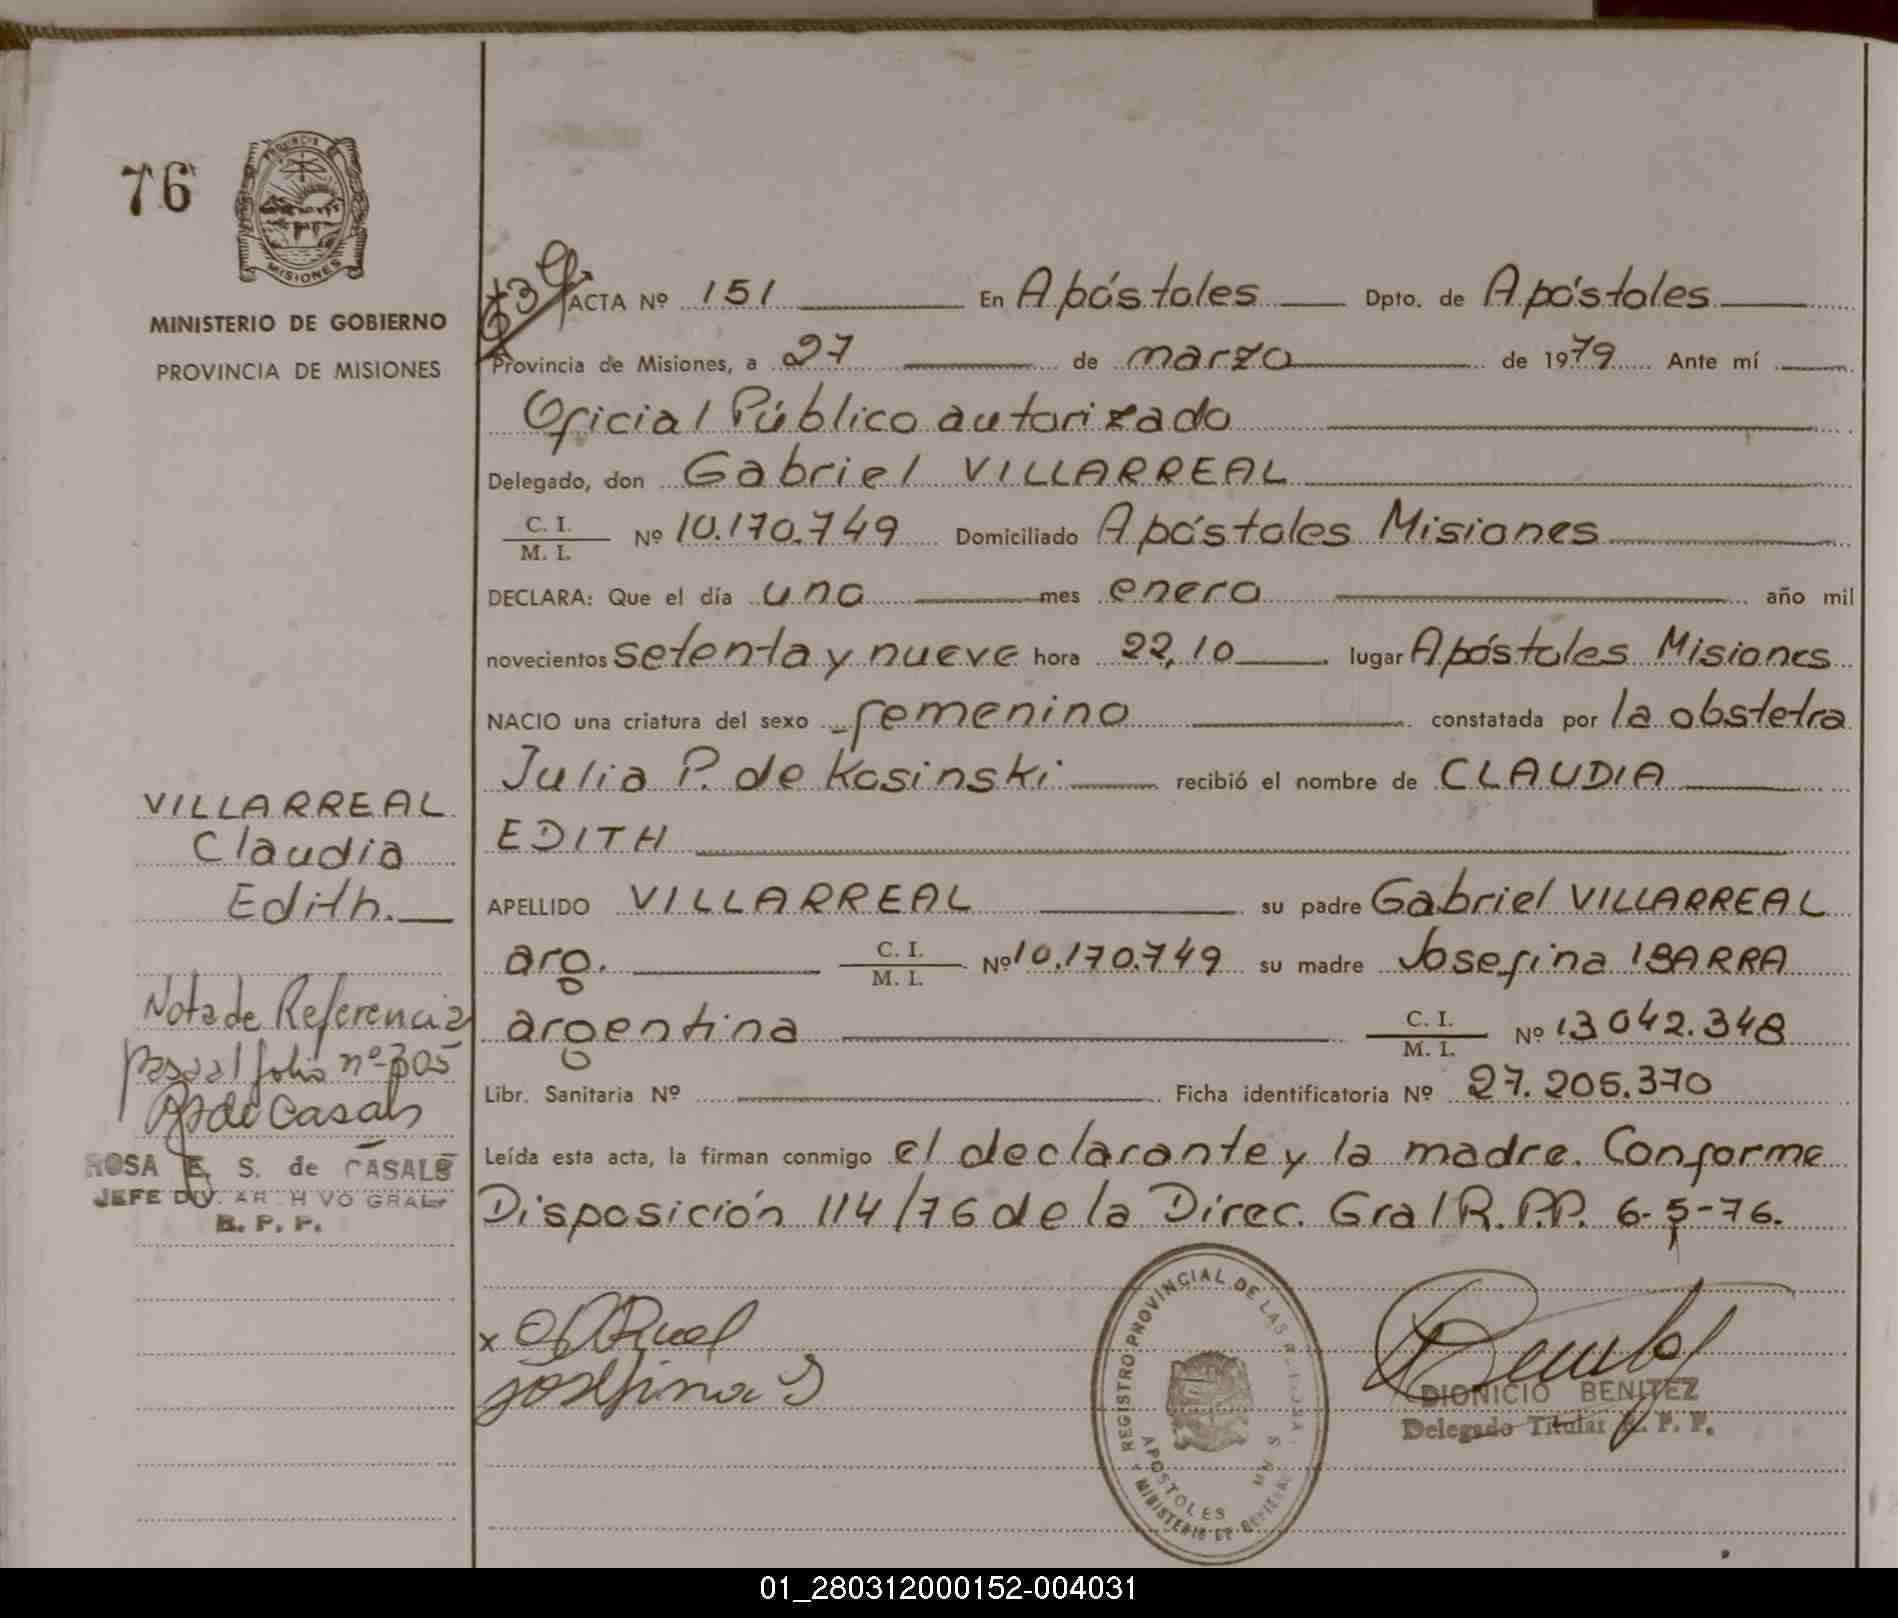 76
PROVINCIA DE
MISIONES
MINISTERIO DE GOBIERNO
PROVINCIA DE MISIONES
ACTA Nº 151 En Apóstoles Dpto. de Apóstoles
Provincia de Misiones, a 27 de marzo de 1979 Ante mí
Oficial Público autorizado
Delegado, don Gabriel VILLARREAL
C. I.
M. I. Nº 10.170.749 Domiciliado Apóstoles Misiones
DECLARA: Que el día uno mes enero año mil
novecientos setenta y nueve hora 22,10 lugar Apóstoles Misiones
NACIO una criatura del sexo femenino constatada por la obstetra
Julia P. de Kosinski recibió el nombre de CLAUDIA
EDITH
APELLIDO VILLARREAL su padre Gabriel VILLARREAL
arg. C. I.
M. I. Nº 10.170.749 su madre Josefina IBARRA
argentina C. I.
M. I. Nº 13 042.348
Libr. Sanitaria Nº Ficha identificatoria Nº 27.205.370
Leída esta acta, la firman conmigo el declarante y la madre. Conforme
Disposición 114/76 de la Direc. Gral R.P.P. 6-5-76.
VILLARREAL
Claudia
Edith.
Nota de Referencia
pasa al folio nº 305
de Casals
ROSA E. S. de CASALS
JEFE DIV. ARCHIVO GRAL.
R. P. P.
x
Josefina I
REGISTRO PROVINCIAL DE LAS PERSONAS
APOSTOLES MNES
MINISTERIO DE GOBIERNO
DIONICIO BENITEZ
Delegado Titular R. P. P.
01_280312000152-004031